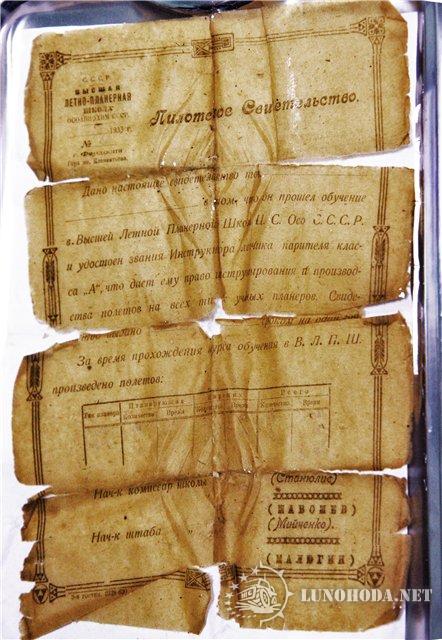 С.С.С.Р.
ВЫСШАЯ
ЛЕТНО-ПЛАНЕРНАЯ
ШКОЛА
ОСОАВИАХИМ СССР.
1933 г.
№
г. Феодосия
Гора им. Клементьева.
Пилотское Свидетельство.
Дано настоящее свидетельство тов.
в том, что он прошел обучение
в Высшей Летной Планерной Школ Ц. С. Осо С.С.С.Р.
и удостоен звания Инструктора летчика парителя клас-
са „А“, что дает ему право инструктирования и производ-
ства полетов на всех ти учных планеров. Свиде-
сроком на один
За время прохождения курса обучения в В. Л. П. Ш.
произведено полетов:
Тип планера
Планирующая
Парящих
Всего
Количество
Время
Время
Количество
Время
Нач-к комиссар школы
(Станюлис)
(НАВОЛЕВ)
(Мийченко)
Нач-к штаба „
(МАЛЮГИН)
LUNOHODA.NET